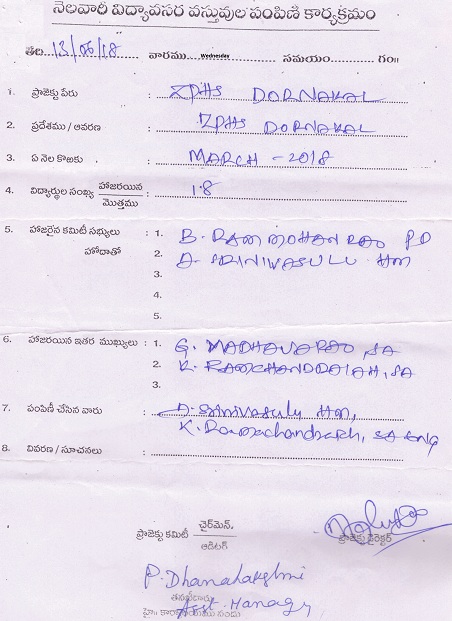 నెలవారీ విద్యావసర వస్తువుల పంపిణి కార్యక్రమం
తేది. 13/06/18 వారము Wednesday సమయం గం॥
1. ప్రాజెక్టు పేరు : ZPHS DORNAKAL
2. ప్రదేశము / ఆవరణ : ZPHS DORNAKAL
3. ఏ నెల కొఱకు : MARCH - 2018
4. విద్యార్థుల సంఖ్య హాజరయిన / మొత్తము : 18
5. హాజరైన కమిటీ సభ్యులు : 1. B. RAM MOHAN RAO PD
హోదాతో 2. A. SRINIVASULU HM
3.
4.
5.
6. హాజరయిన ఇతర ముఖ్యులు : 1. G. MADHAVARAO, SA
2. K. RAMCHANDRAIAH, SA
3.
7. పంపిణీ చేసిన వారు : A. Srinivasulu HM,
K. Ramachandraiah, SA ENG
8. వివరణ / సూచనలు :
ప్రాజెక్టు కమిటీ చైర్‌మెన్. / ఆడిటర్ ప్రాజెక్టు డైరెక్టర్
P. Dhanalakshmi
Asst. Manager